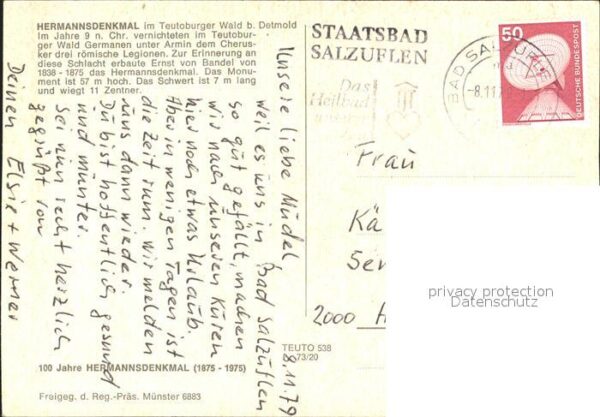 HERMANNSDENKMAL im Teutoburger Wald b. Detmold
Im Jahre 9 n. Chr. vernichteten im Teutobur-
ger Wald Germanen unter Armin dem Cherus-
ker drei römische Legionen. Zur Erinnerung an
diese Schlacht erbaute Ernst von Bandel von
1838 - 1875 das Hermannsdenkmal. Das Monu-
ment ist 57 m hoch. Das Schwert ist 7 m lang
und wiegt 11 Zentner.
8.11.79
Unsere liebe Mudel,
weil es uns in Bad Salzuflen
so gut gefällt, machen
wir nach unseren Kuren
hier noch etwas Urlaub.
Aber in wenigen Tagen ist
die Zeit rum. Wir melden
uns dann wieder.
Du bist hoffentlich gesund
und munter.
Sei nun recht herzlich
gegrüßt von
Deinen Elsie + Werner
100 Jahre HERMANNSDENKMAL (1875 - 1975)
Freigeg. d. Reg.-Präs. Münster 6883
TEUTO 538
73/20
STAATSBAD
SALZUFLEN
Das
Heilbad
BAD SALZUFLEN
-8.11.7
50
DEUTSCHE BUNDESPOST
Frau
Kä
Sen
2000 H
privacy protection
Datenschutz